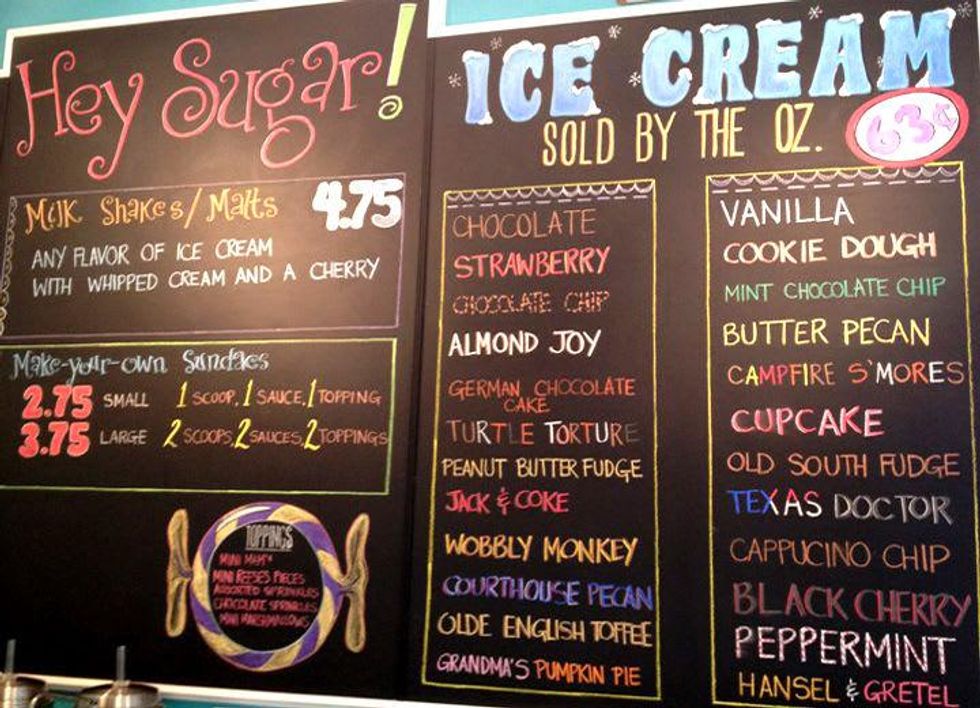 Hey Sugar!
Milk Shakes/Malts 4.75
ANY FLAVOR OF ICE CREAM
WITH WHIPPED CREAM AND A CHERRY
Make-your-own Sundaes
2.75 SMALL 1 SCOOP, 1 SAUCE, 1 TOPPING
3.75 LARGE 2 SCOOPS, 2 SAUCES, 2 TOPPINGS
TOPPINGS
MINI M&M'S
MINI REESES PIECES
ASSORTED SPRINKLES
CHOCOLATE SPRINKLES
MINI MARSHMALLOWS
ICE CREAM
SOLD BY THE OZ. 63¢
CHOCOLATE
STRAWBERRY
CHOCOLATE CHIP
ALMOND JOY
GERMAN CHOCOLATE
CAKE
TURTLE TORTURE
PEANUT BUTTER FUDGE
JACK & COKE
WOBBLY MONKEY
COURTHOUSE PECAN
OLDE ENGLISH TOFFEE
GRANDMA'S PUMPKIN PIE
VANILLA
COOKIE DOUGH
MINT CHOCOLATE CHIP
BUTTER PECAN
CAMPFIRE S'MORES
CUPCAKE
OLD SOUTH FUDGE
TEXAS DOCTOR
CAPPUCINO CHIP
BLACK CHERRY
PEPPERMINT
HANSEL & GRETEL